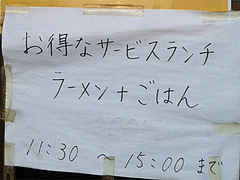 お得なサービスランチ
ラーメン+ごはん
11:30 〜 15:00 まで